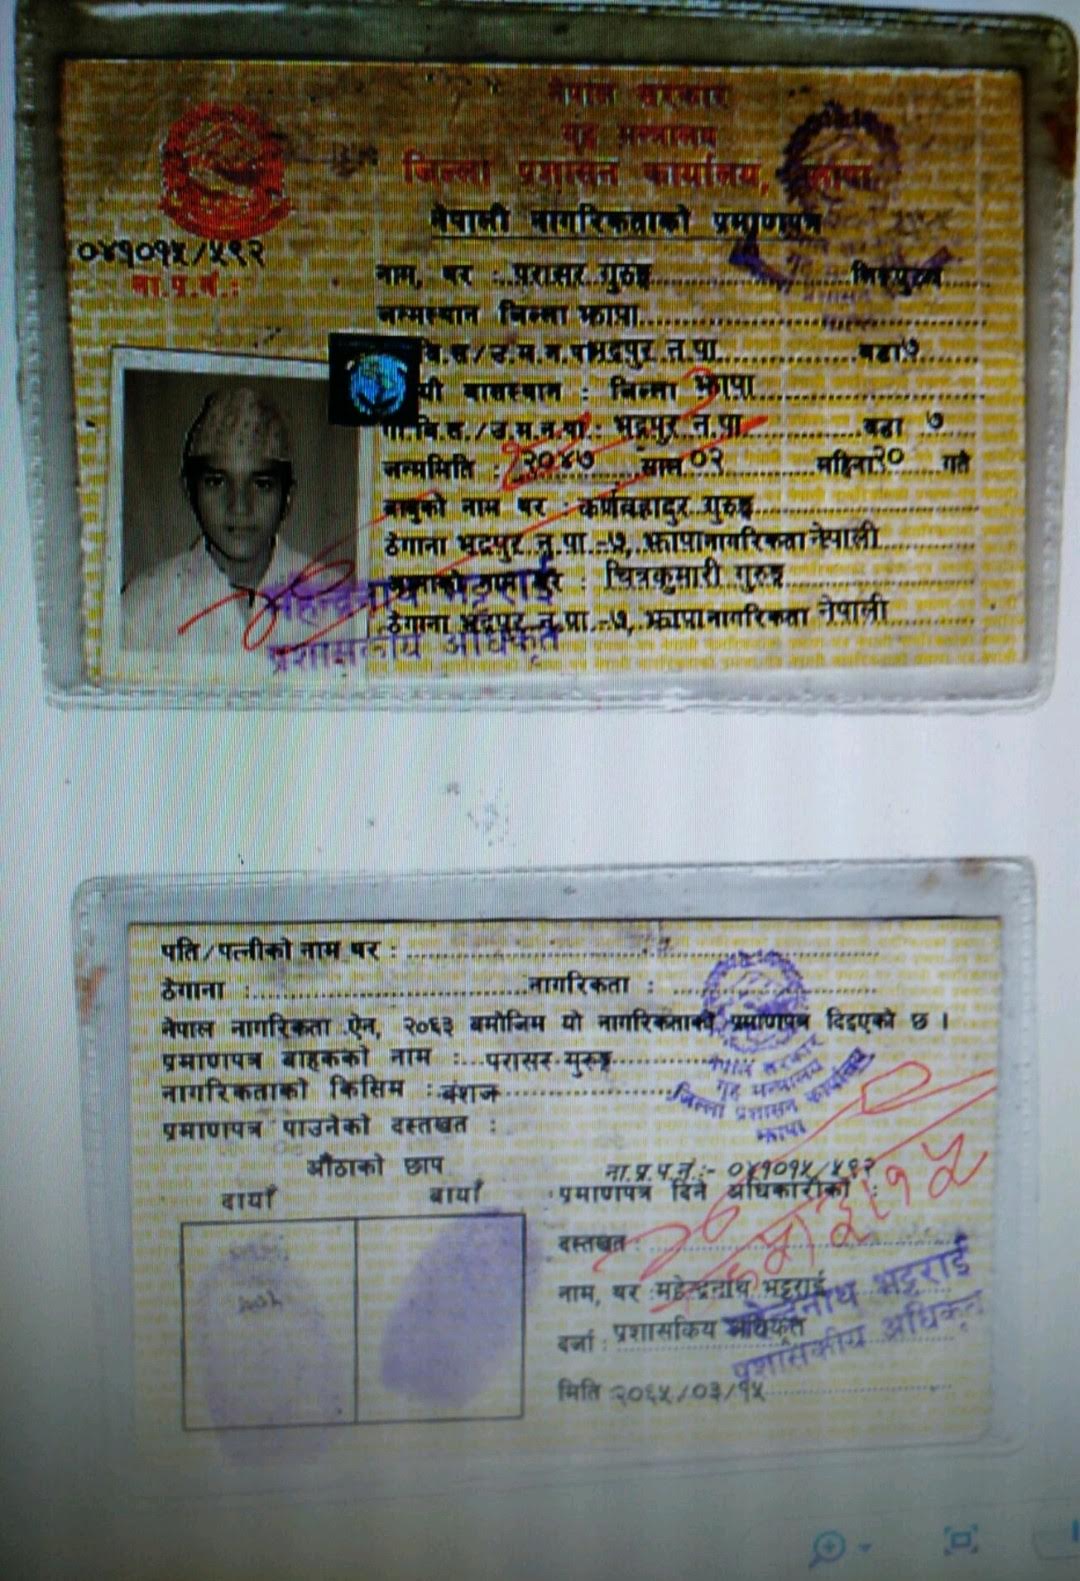 नेपाल सरकार
गृह मन्त्रालय
जिल्ला प्रशासन कार्यालय, झापा
नेपाली नागरिकताको प्रमाणपत्र
०४१०१५/५९२
ना.प्र.नं.:
नाम, थर : परासर गुरुङ्ग लिङ्ग पुरुष
जन्मस्थान जिल्ला झापा
वि.स/उ.म.न.पा भद्रपुर न.पा. वडा ७
यी वासस्थान : जिल्ला झापा
गा.वि.स./उ.म.न.पा : भद्रपुर न.पा. वडा ७
जन्ममिति : २०४७ साल ०२ महिना २० गते
बाबुको नाम थर : कर्णबहादुर गुरुङ्ग
ठेगाना भद्रपुर न.पा.-७, झापा नागरिकता नेपाली
आमाको नाम थर : चित्रकुमारी गुरुङ्ग
ठेगाना भद्रपुर न.पा.-७, झापा नागरिकता नेपाली
महेन्द्रनाथ भट्टराई
प्रशासकीय अधिकृत
पति/पत्नीको नाम थर :
ठेगाना : नागरिकता :
नेपाल नागरिकता ऐन, २०६३ बमोजिम यो नागरिकताको प्रमाणपत्र दिइएको छ ।
प्रमाणपत्र बाहकको नाम : परासर गुरुङ्ग
नागरिकताको किसिम : बंशज
प्रमाणपत्र पाउनेको दस्तखत :
नेपाल सरकार
गृह मन्त्रालय
जिल्ला प्रशासन कार्यालय
झापा
औंठाको छाप
दायाँ बायाँ
ना.प्र.प.नं.:- ०४१०१५/५९२
प्रमाणपत्र दिने अधिकारीको :
दस्तखत :
नाम, थर : महेन्द्रनाथ भट्टराई
दर्जा : प्रशासकिय अधिकृत
मिति २०६५/०३/१५
महेन्द्रनाथ भट्टराई
प्रशासकीय अधिकृत